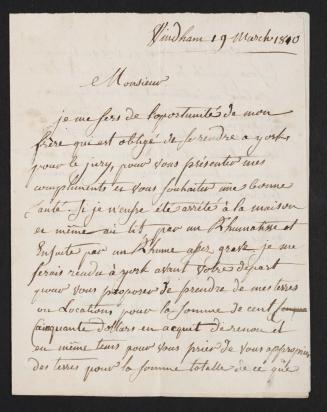 Windham 19 March 1810
Monsieur
je me sers de l'oportunité de mon
frère qui est obligé de se rendre a york
pour le jury, pour vous présenter mes
compliments et vous souhaiter une bonne
santé. Si je n'eusse été arrêté à la maison
et même au lit par un Rhumatisme et
Ensuite par un Rhume assez grave je me
serais rendu à york avant Votre départ
pour vous proposer de prendre de mes terres
ou Locations pour la somme de cent
Cinquante dollars en acquit de
et
en même tems pour vous prier de vous approprier
des terres pour la somme totalle de ce que